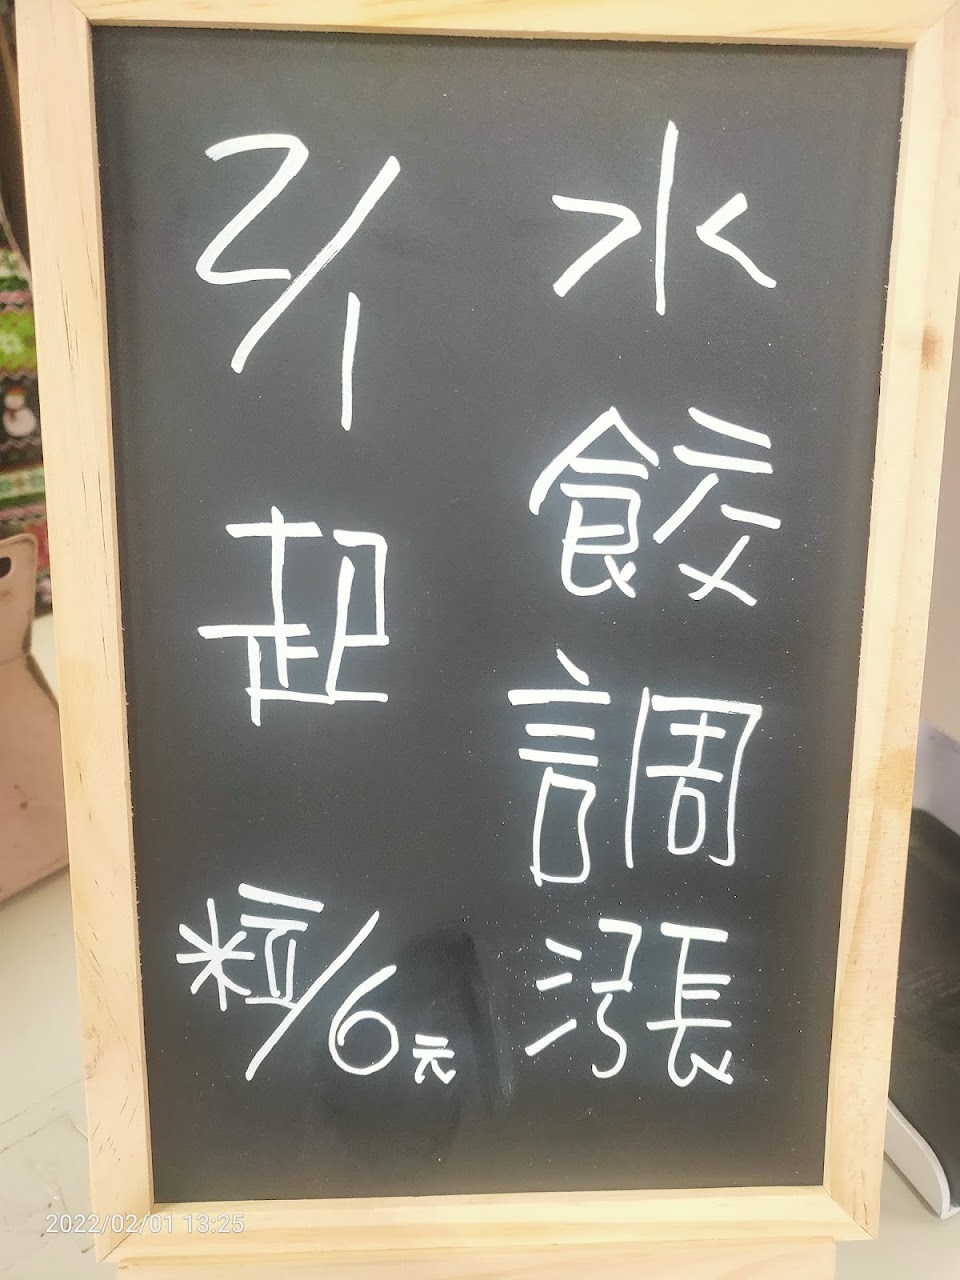 水餃調漲
2/1起
粒/6元
2022/02/01 13:25